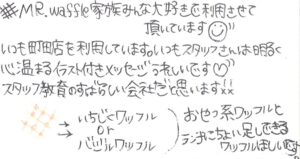 MR.waffle家族みんな大好きで利用させて
頂いています
いつも町田店を利用しています。いつもスタッフさんは明るく
心温まるイラスト付きメッセージうれしいです♡
スタッフ教育のすばらしい会社だと思います!!
→いちじくワッフル
or
→バジルワッフル
おせっ系ワッフルと
ランチにちょい足しできる
ワッフルほしいです